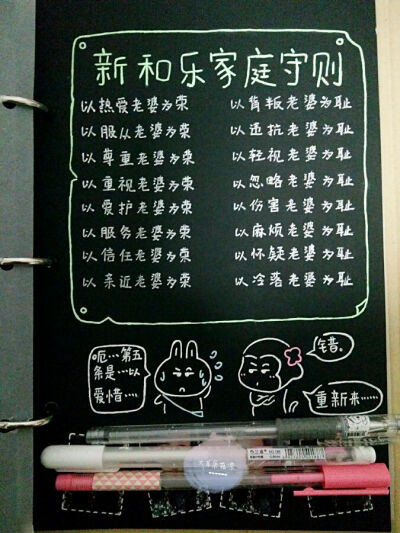 新和乐家庭守则
以热爱老婆为荣 以背叛老婆为耻
以服从老婆为荣 以违抗老婆为耻
以尊重老婆为荣 以轻视老婆为耻
以重视老婆为荣 以忽略老婆为耻
以爱护老婆为荣 以伤害老婆为耻
以服务老婆为荣 以麻烦老婆为耻
以信任老婆为荣 以怀疑老婆为耻
以亲近老婆为荣 以冷落老婆为耻
呃…第五
条是…以
爱惜…
错。
重新来……